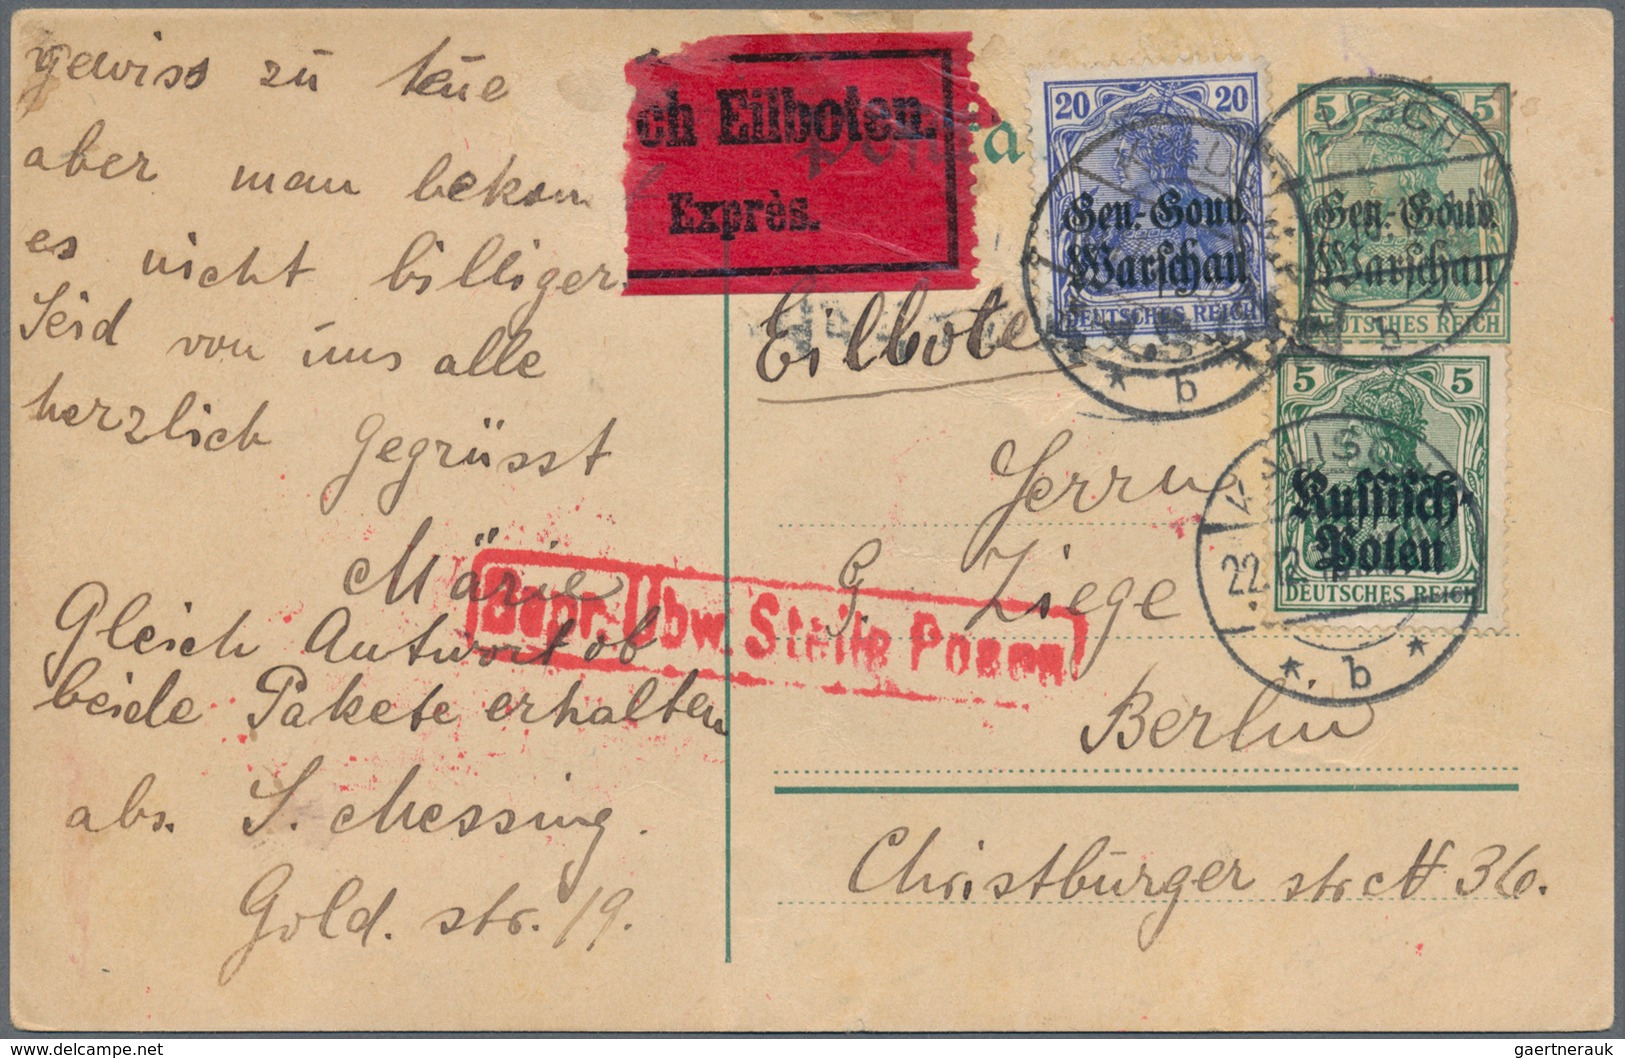 gewiss zŭ teŭe
aber man bekom
es nicht billiger.
Seid von ŭns alle
herzlich gegrüsst
Märie
Gleich Antwort ob
beide Pakete erhalten
abs. S. Messing.
Gold. str. 19.
ch Eilboten.
Exprès.
Eilbote
20 20
Gen.-Gouv.
Warschau
DEUTSCHES REICH
5 5
Gen.-Gouv.
Warschau
DEUTSCHES REICH
b
b
5 5
Russisch-
Polen
DEUTSCHES REICH
KALISCH
22.12.
b
Herrn
G. Ziege
Berlin
Christbŭrger str. N 36.
Übw. Stelle Posen
delcampe.net
gaertnerauk